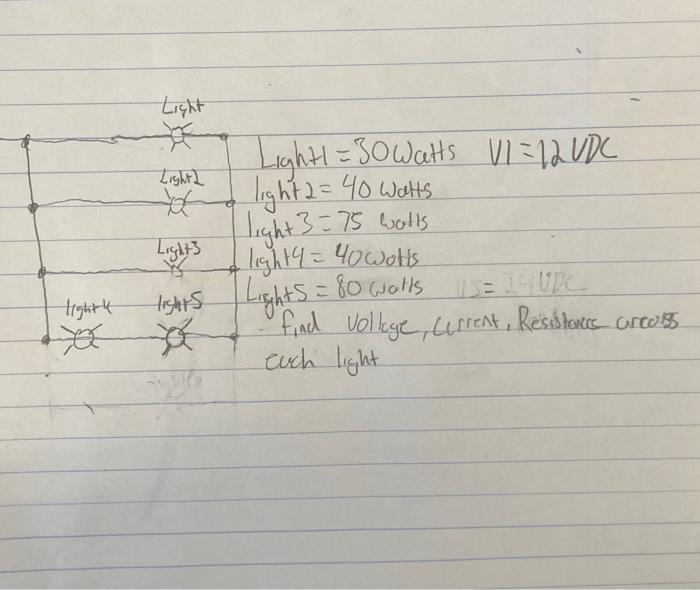 Light
Light2
Light3
light4 light5
Light1 = 30 Watts V1 = 12 VDC
light2 = 40 Watts
light3 = 75 watts
light4 = 40 watts
Light5 = 80 watts V5 = 24 VDC
. find Voltage, Current, Resistance across
each light